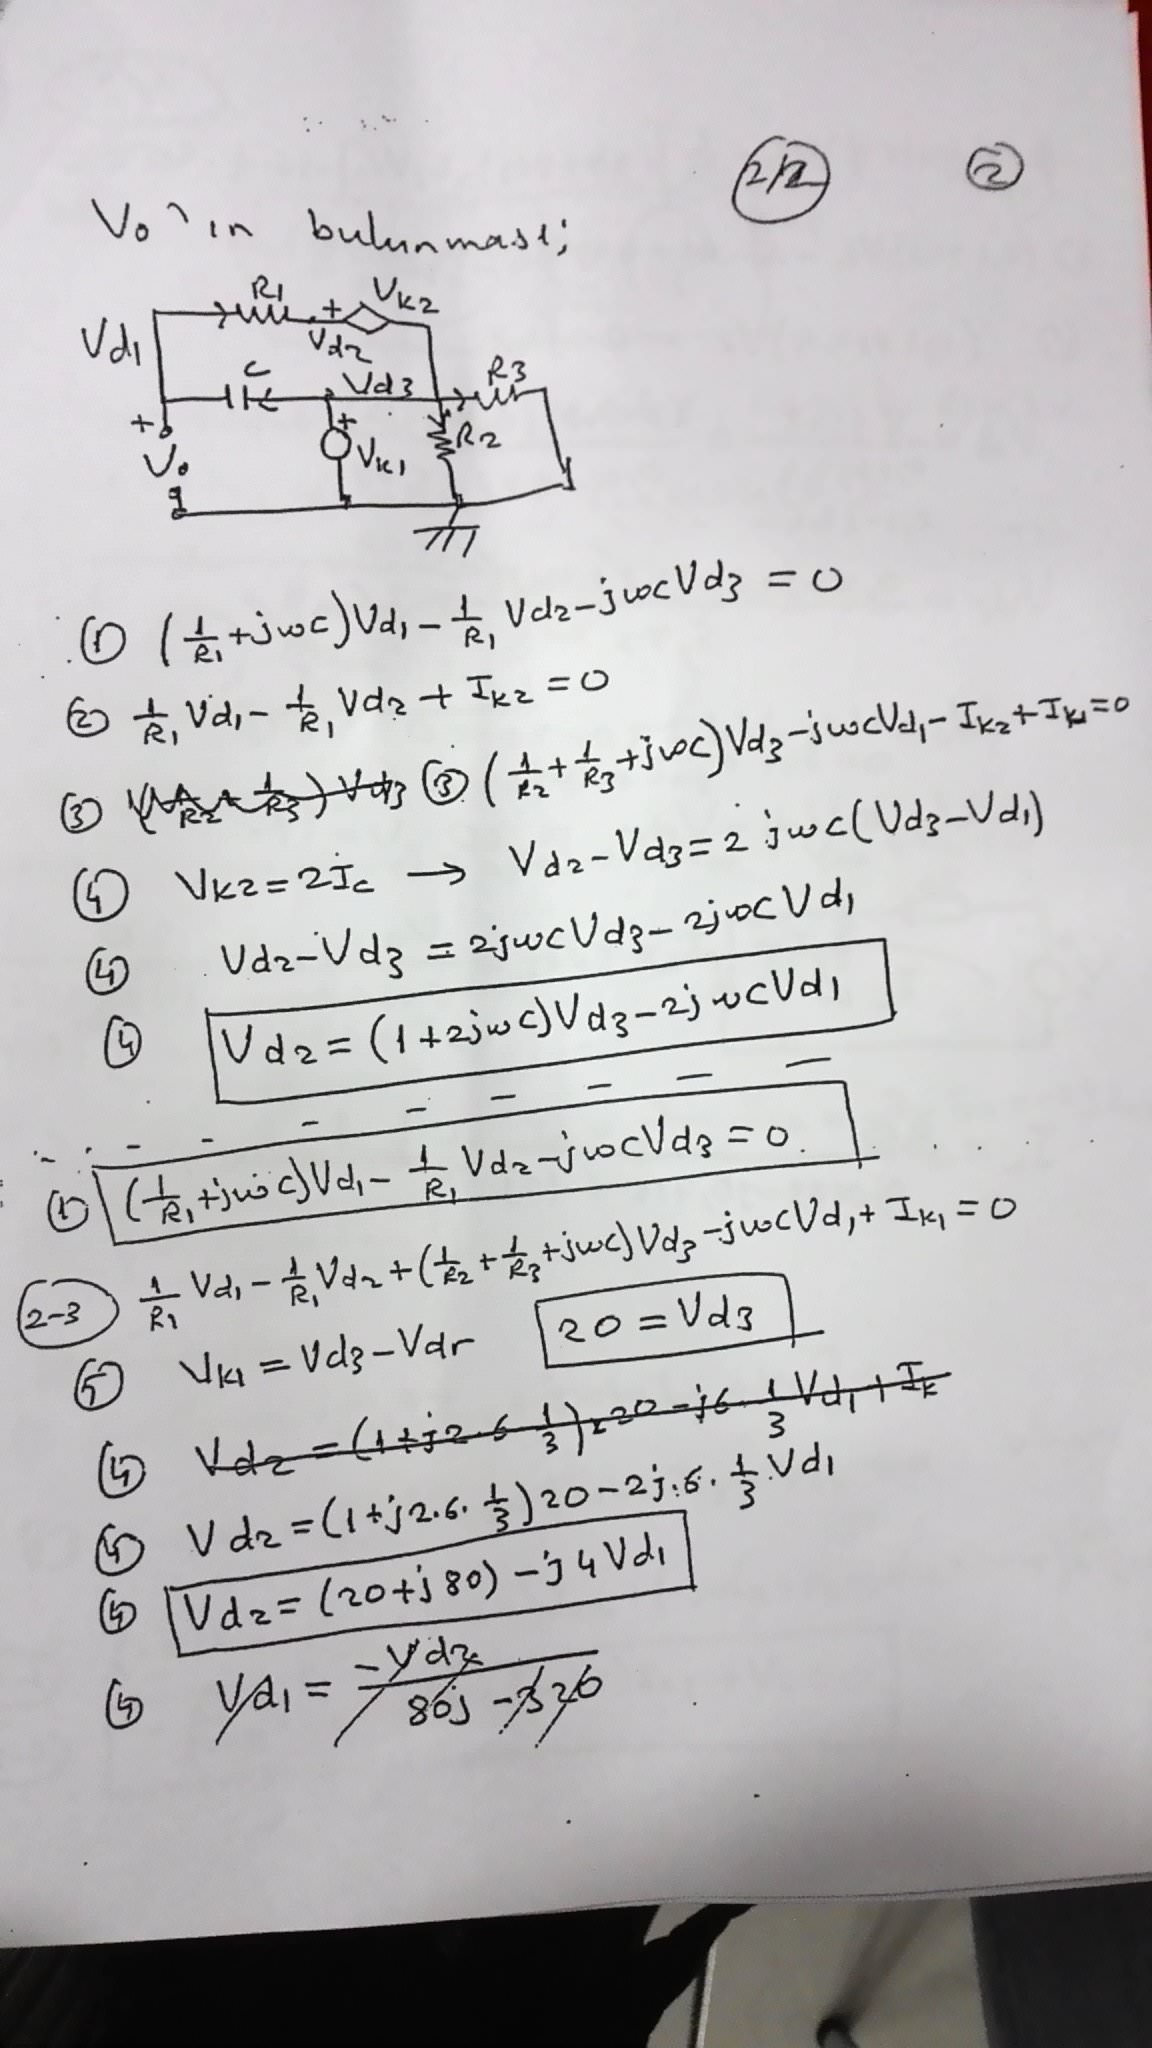 2/2
2
Vo'ın bulunması;
R1
+
Vk2
Vd1
Vd2
C
Vd3
R3
+
Vo
+
Vk1
R2
① (1/R1 + jwc)Vd1 - 1/R1 Vd2 - jwcVd3 = 0
② 1/R1 Vd1 - 1/R1 Vd2 + Ik2 = 0
③ ③ (1/R2 + 1/R3 + jwc)Vd3 - jwcVd1 - Ik2 + Ik1 = 0
④ Vk2 = 2Ic → Vd2 - Vd3 = 2 jwc(Vd3 - Vd1)
④ Vd2 - Vd3 = 2jwcVd3 - 2jwcVd1
④ Vd2 = (1 + 2jwc)Vd3 - 2jwcVd1
① (1/R1 + jwc)Vd1 - 1/R1 Vd2 - jwcVd3 = 0
2-3 1/R1 Vd1 - 1/R1 Vd2 + (1/R2 + 1/R3 + jwc)Vd3 - jwcVd1 + Ik1 = 0
⑤ Vk1 = Vd3 - Vdr 20 = Vd3
④ Vd2 = (1 + j2.6 1/3) x 20 - j6. 1/3 Vd1 + Ik
④ Vd2 = (1 + j2.6. 1/3)20 - 2j.6. 1/3 Vd1
④ Vd2 = (20 + j80) - j4Vd1
④ Vd1 = -Vd2 / 80j - 320